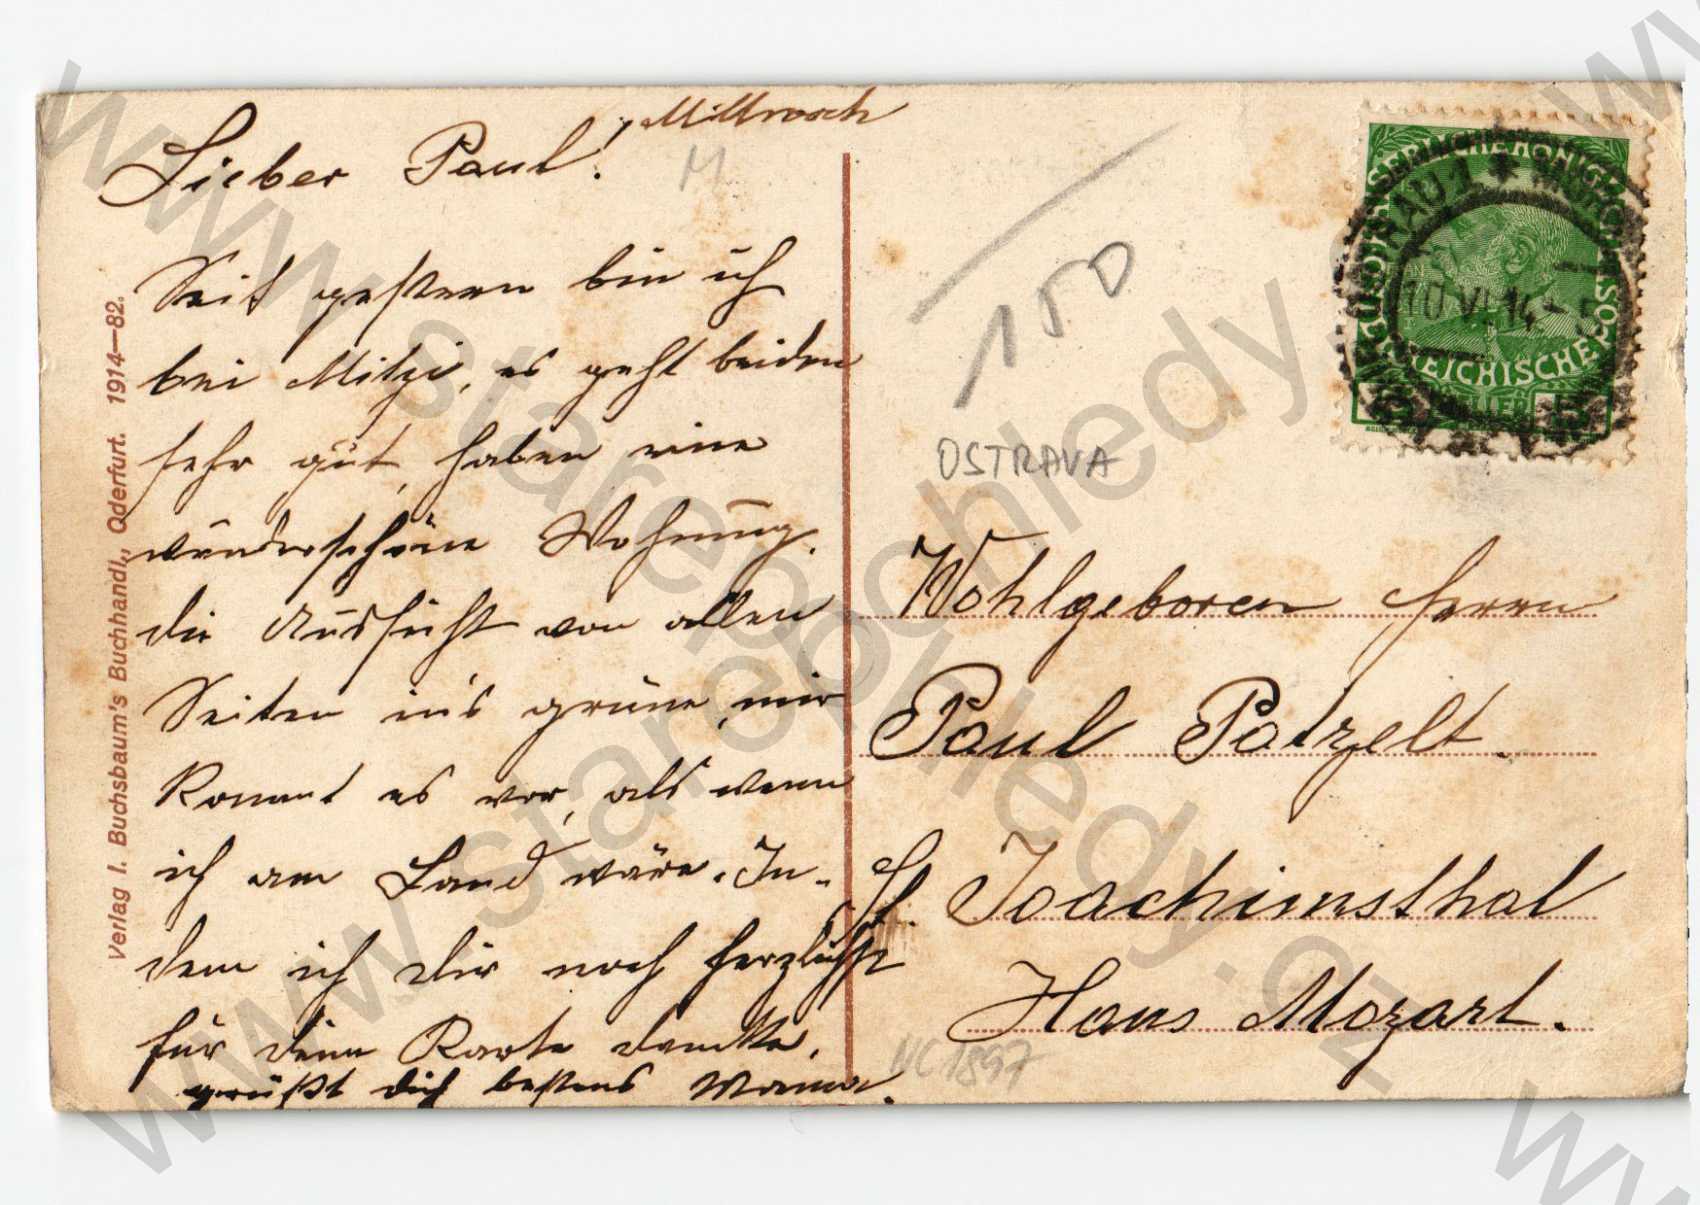 Mittwoch
Lieber Paul!
Seit gestern bin ich
bei Mitzi, es geht beiden
sehr gut, haben eine
wunderschöne Wohnung.
die Aussicht von allen
Seiten in's grüne, mir
kommt es vor, als wenn
ich am Land wäre. In-
dem ich dir noch herzlichst
für deine Karte danke,
grüßt dich bestens Mama.
Verlag I. Buchsbaum's Buchhandl., Oderfurt. 1914—82.
M
150
OSTRAVA
KAISERLICHE KÖNIGLICHE ÖSTERREICHISCHE POST
5 HELLER 5
10 VI 14 - 5
Wohlgeboren Herrn
Paul Patzelt.
St. Joachimsthal
Haus Mozart.
MC1897
www.starepohledy.cz
www.starepohledy.cz